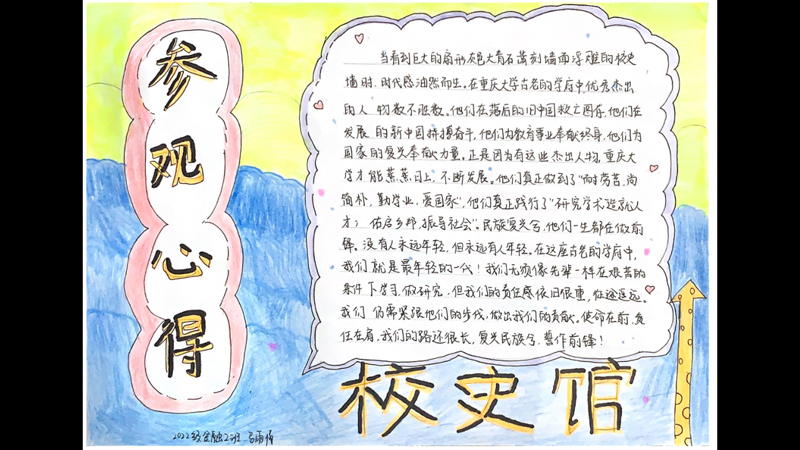 参观心得
当看到巨大的扇形灰色大青石蓝刻墙面浮雕的校史
墙时，时代感油然而生。在重庆大学古名的学府中优秀杰出
的人物数不胜数。他们在落后的旧中国救亡图存，他们在
发展的新中国拼搏奋斗，他们为教育事业奉献终身，他们为
国家的复兴奉献力量。正是因为有这些杰出人物，重庆大
学才能蒸蒸日上，不断发展。他们真正做到了“耐劳苦，尚
简朴，勤学业，爱国家”，他们真正践行了“研究学术，造就人
才；佑启乡邦，振导社会”。民族复兴令，他们一生都在做前
锋。没有人永远年轻，但永远有人年轻。在这座古名的学府中，
我们就是最年轻的一代！我们无须像先辈一样在艰苦的
条件下学习、做研究，但我们的责任感依旧很重，征途遥远。
我们仍需紧跟他们的步伐，做出我们的贡献。使命在前，责
任在肩，我们的路还很长，复兴民族令，誓作前锋！
校史馆
2022级金融2班